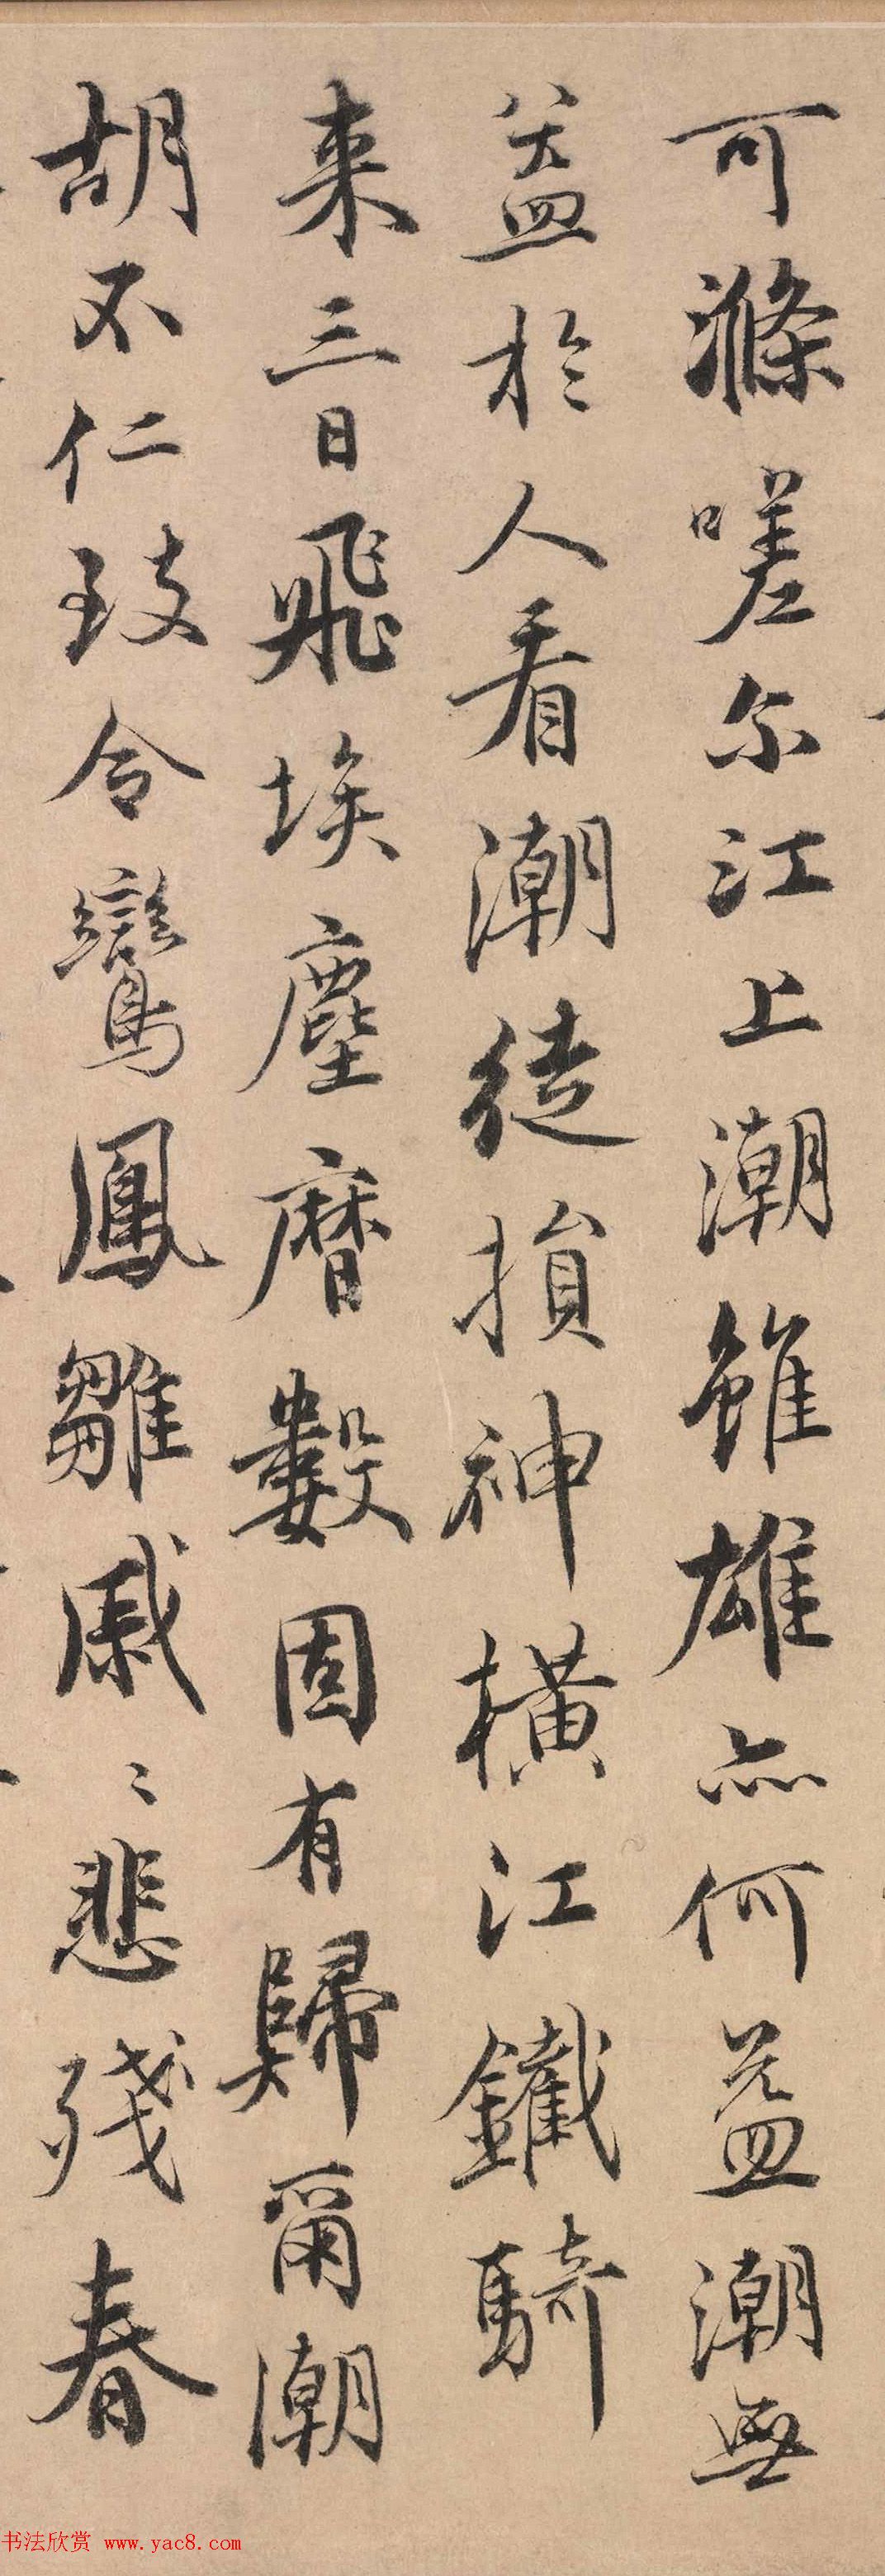 可滌嗟尔江上潮雖雄亦何益潮無
益於人看潮徒損神橫江鐵騎
来三日飛埃塵曆數固有歸爾潮
胡不仁致令鸞鳳雛戚〻悲殘春
书法欣赏 www.yac8.com